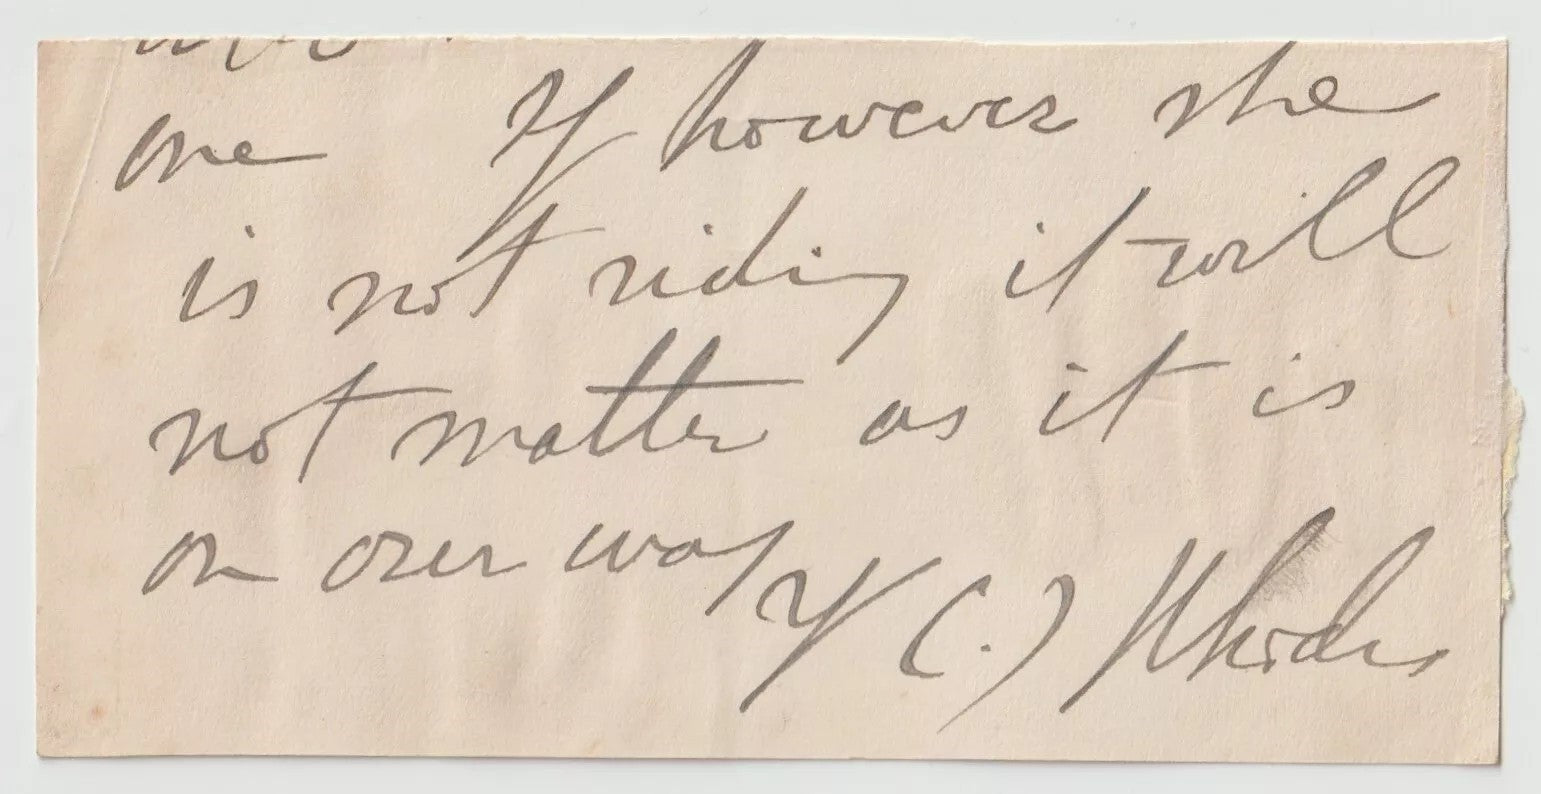 one If however she
is not riding it will
not matter as it is
on our way
Y C.J Rhodes